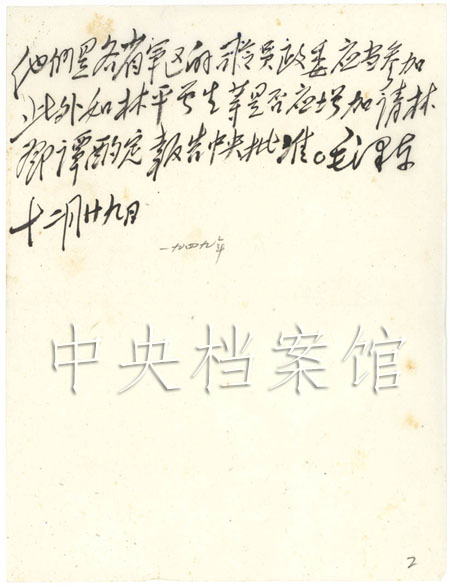 他们是各省军区的司令员政委应当参加
此外如林平
等是否应增加请林
邓谭酌定报告中央批准。毛泽东
十二月廿九日
一九四九年
中央档案馆
2